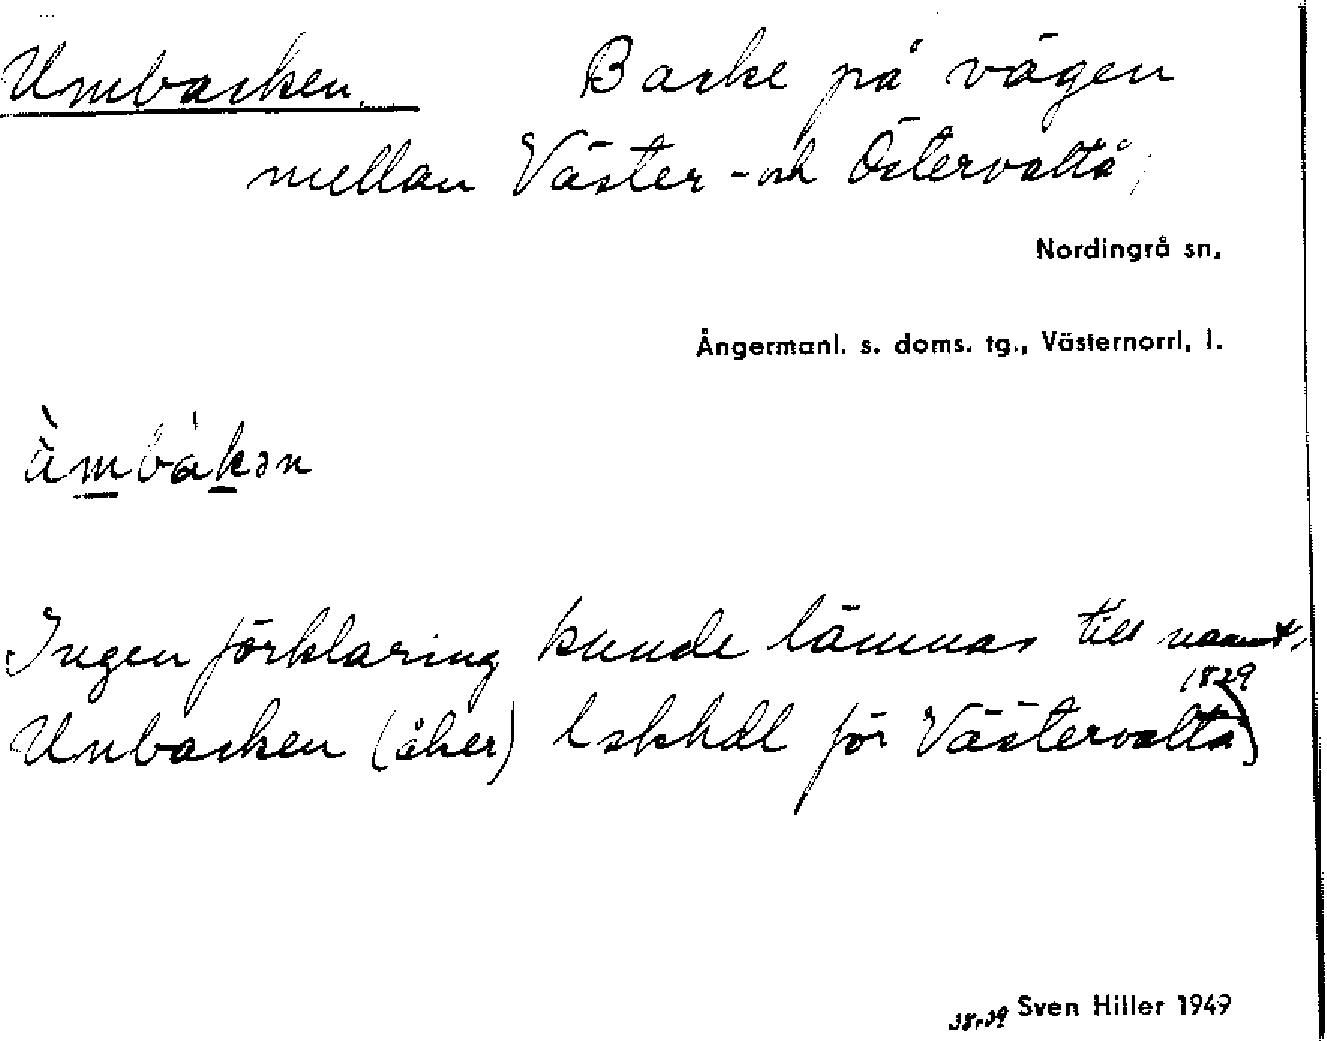 Umbacken Backe på vägen
mellan Väster- och Östervattå,
Nordingrå sn,
Ångermanl. s. doms. tg., Västernorrl. l.
Ingen förklaring kunde lämnas till namnet.
Umbacken (åker) Lskhdl för Västervattå 1829)
38-39 Sven Hiller 1949